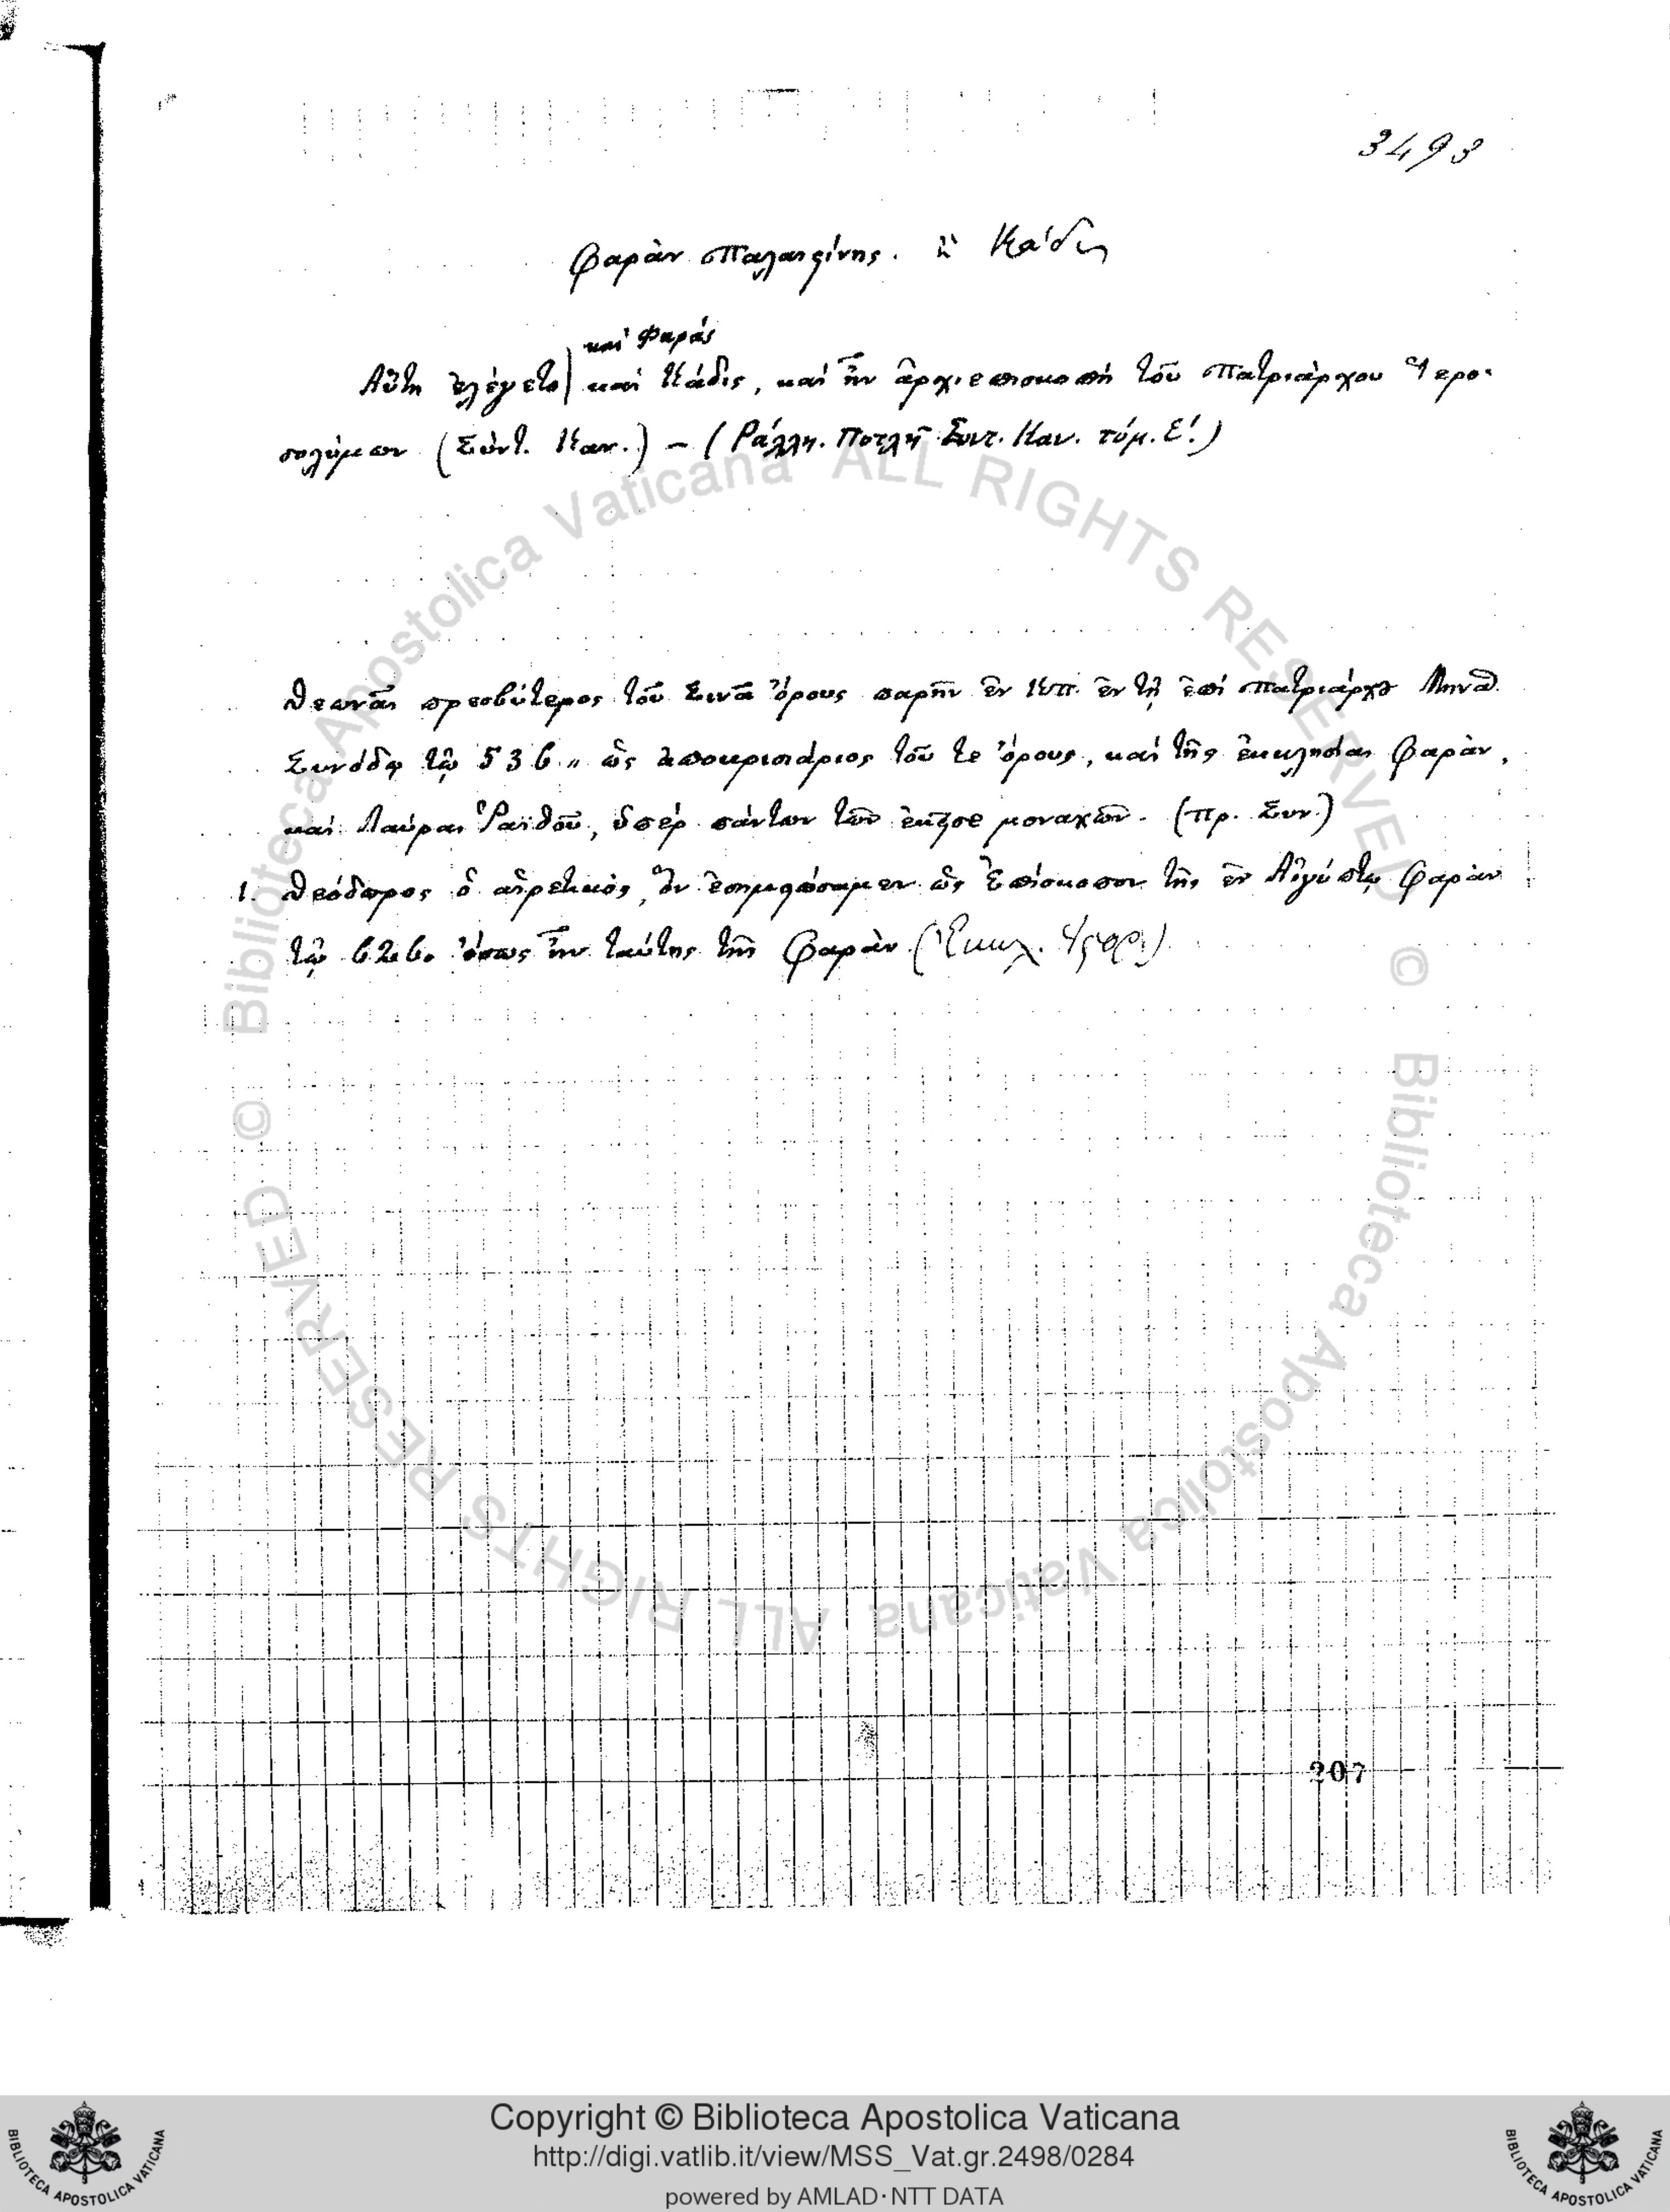 3493
Φαρὰν Παλαιστίνης. ἢ Κάδις
καὶ Φαράς
Αὕτη ἐλέγετο καὶ Κάδις, καὶ ἦν ἀρχιεπισκοπή τοῦ Πατριάρχου Ἱερο-
σολύμων (Σύντ. Καν.) – (Ράλλη. Ποτλῆ Συντ. Καν. τόμ. Ε΄.)
Θεωνᾶς πρεσβύτερος τοῦ Σινᾶ ὄρους παρῆν ἐν Κπ. ἐν τῇ ἐπί πατριάρχου Μηνᾶ
Συνόδῳ τῷ 536 ὡς ἀποκρισιάριος τοῦ τε ὄρους, καί τῆς ἐκκλησίας Φαρὰν,
καί Λαύρας Ῥαϊθοῦ, ὑπέρ πάντων τῶν ἐκεῖσε μοναχῶν. (Πρ. Συν.)
1. Θεόδωρος ὁ αἱρετικός, ὅν ἐσημειώσαμεν ὡς Ἐπίσκοπον τῆς ἐν Αἰγύπτῳ Φαρὰν
τῷ 626. ἴσως ἦν ταύτης τῆς Φαρὰν.
207
© Biblioteca Apostolica Vaticana ALL RIGHTS RESERVED
© Biblioteca Apostolica Vaticana ALL RIGHTS RESERVED
Copyright © Biblioteca Apostolica Vaticana
http://digi.vatlib.it/view/MSS_Vat.gr.2498/0284
powered by AMLAD·NTT DATA
BIBLIOTECA APOSTOLICA VATICANA
BIBLIOTECA APOSTOLICA VATICANA